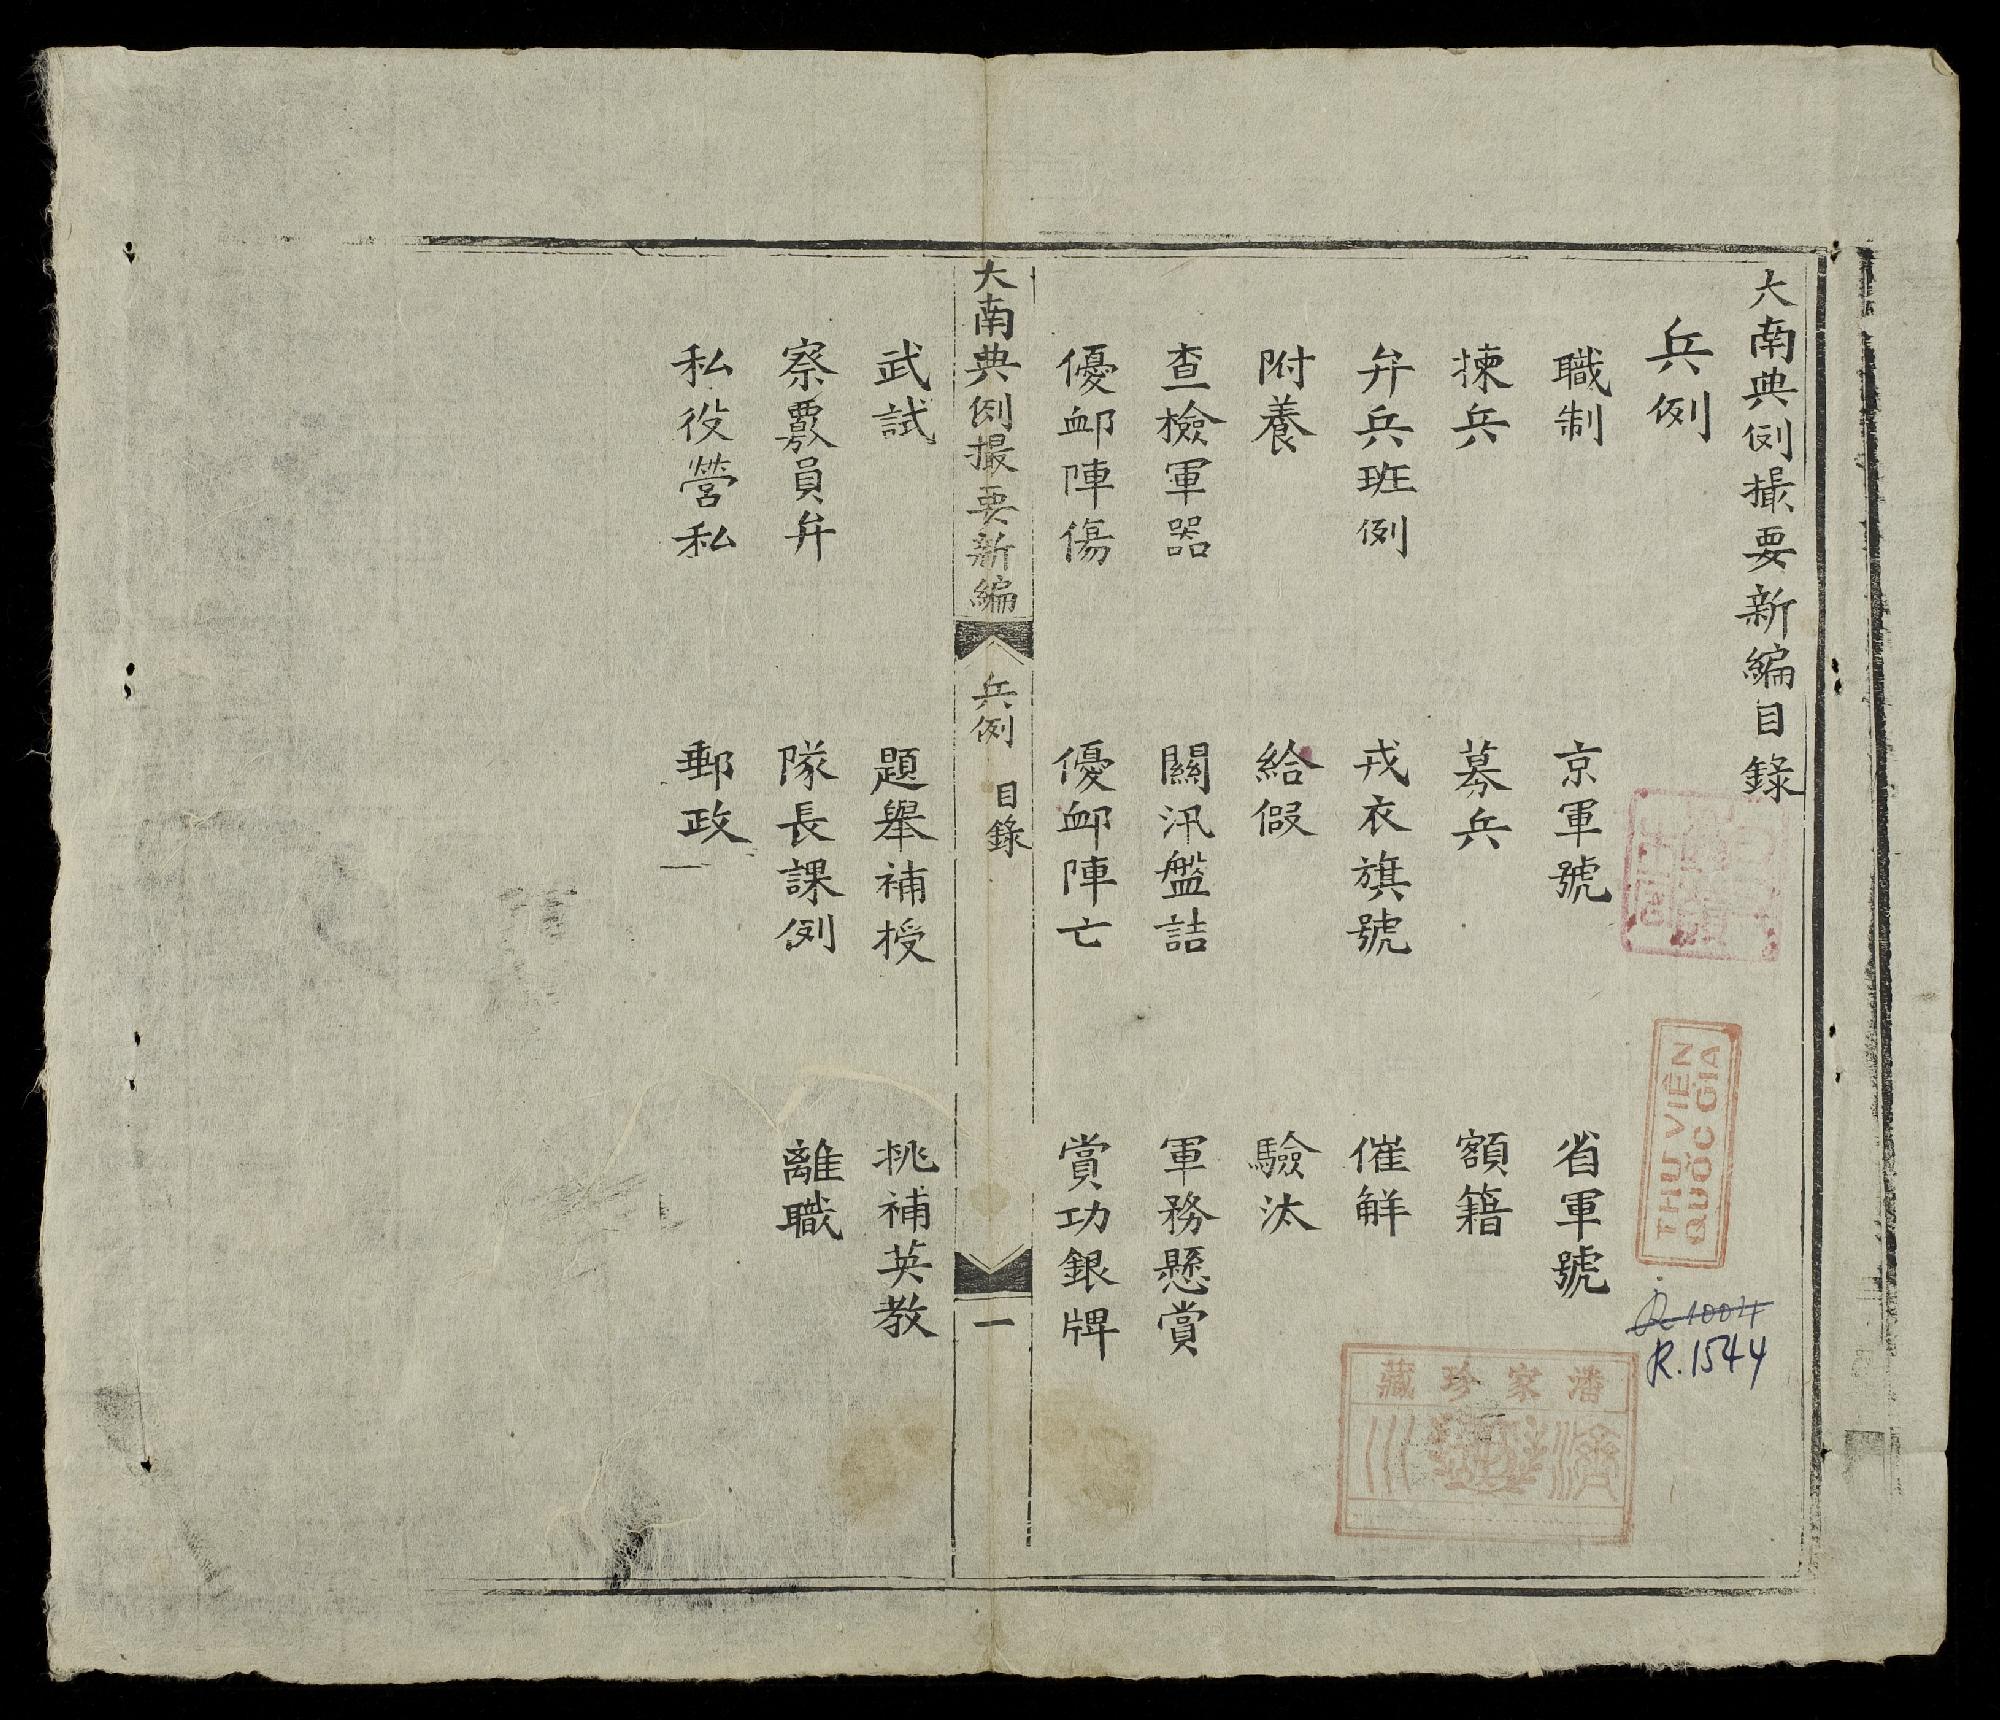 大南典例撮要新編目錄
兵例
職制 京軍號 省軍號
揀兵 募兵 額籍
弁兵班例 戎衣旗號 催觧
附養 給假 驗汰
查檢軍器 關汛盤詰 軍務懸賞
優衈陣傷 優衈陣亡 賞功銀牌
大南典例撮要新編 兵例 目錄 一
武試 題舉補授 挑補英教
察覈員弁 隊長課例 離職
私役營私 郵政
THƯ VIỆN
QUỐC GIA
R.1004
R.1544
潘家珍藏
濟
川